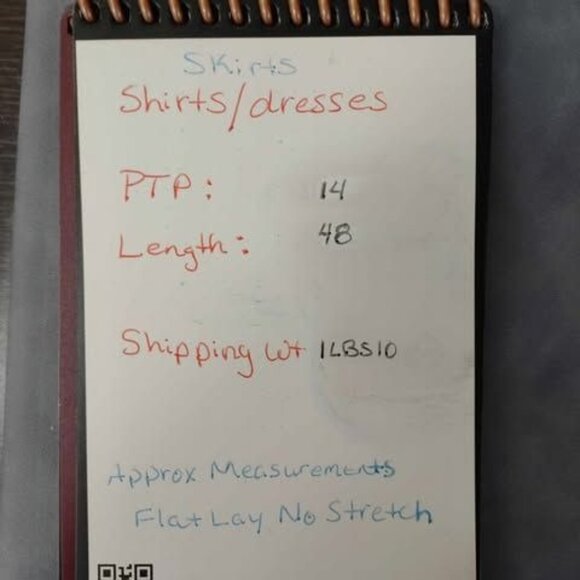 Skirts
Shirts/dresses
PTP: 14
Length: 48
Shipping Wt 1LBS10
Approx Measurements
Flat Lay No Stretch